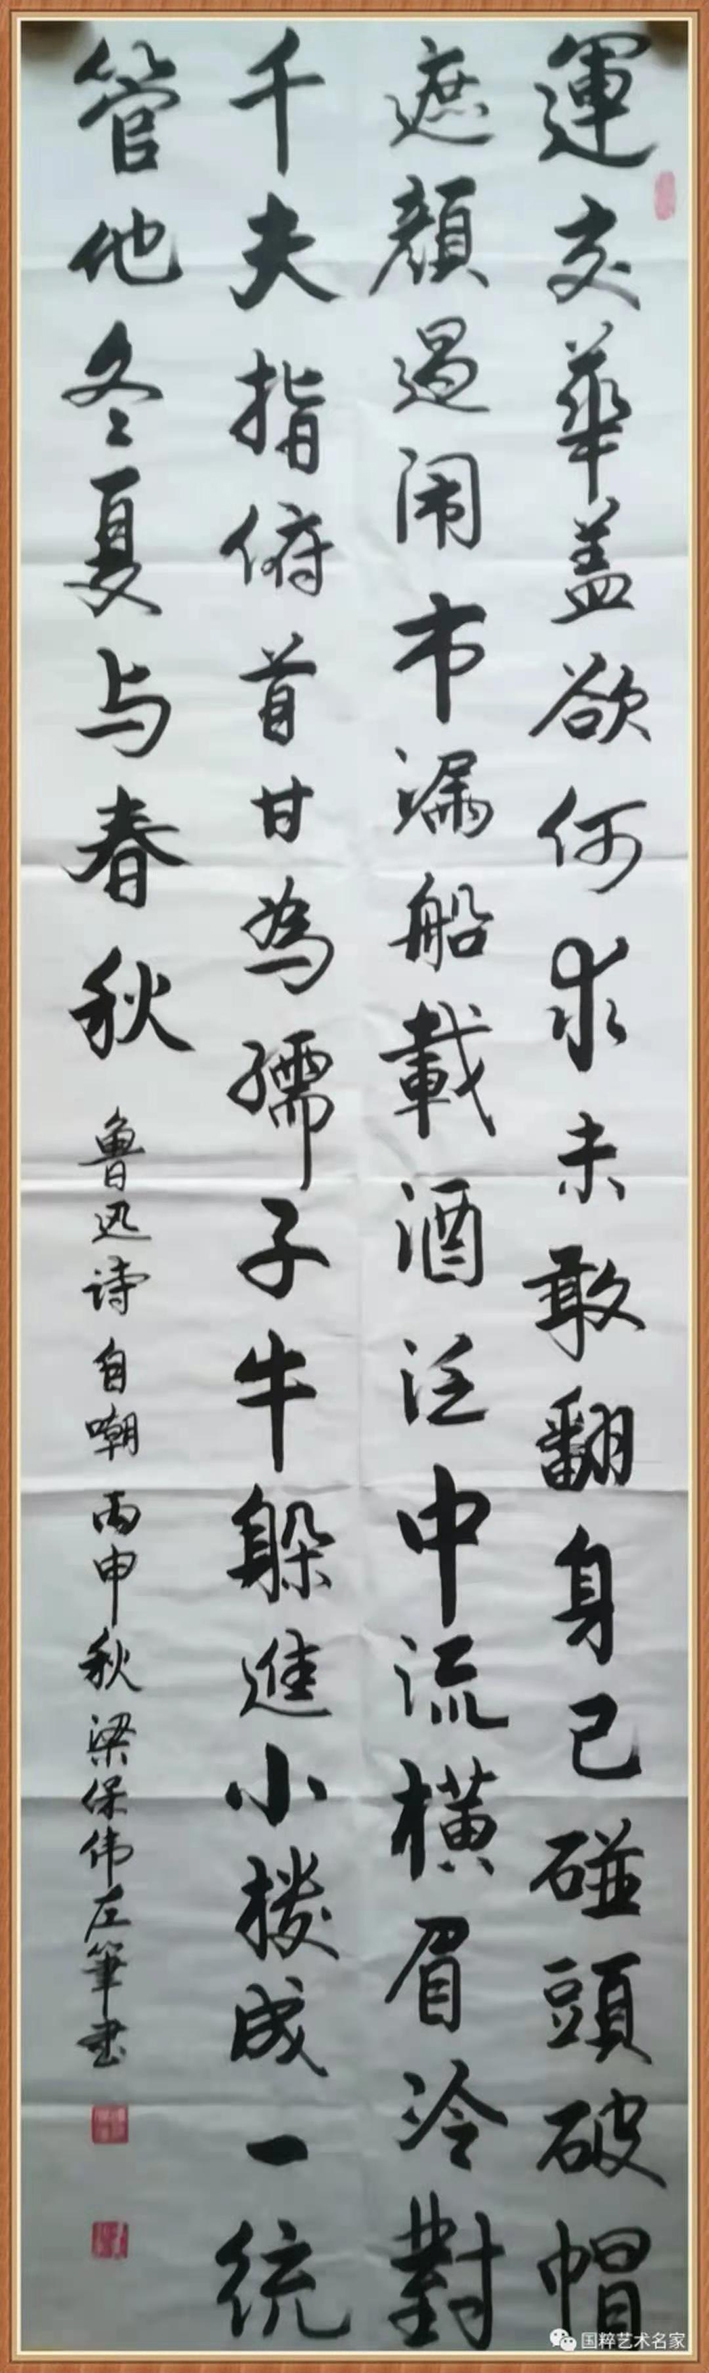 運交華盖欲何求未敢翻身已碰頭破帽
遮顔過闹市漏船載酒泛中流横眉冷對
千夫指俯首甘為孺子牛躲進小楼成一统
管他冬夏与春秋 鲁迅诗自嘲丙申秋梁保伟左筆书
国粹艺术名家